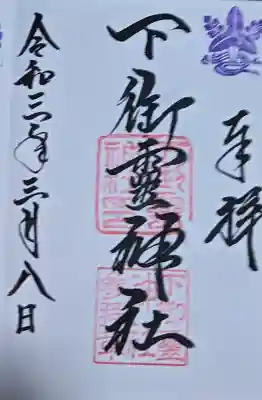 奉拝
下御霊神社
令和三年三月八日